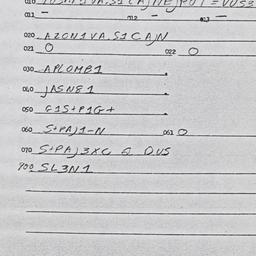 011 - 012 - 013 -
020 AZON1VA.S1CAJN
021 O 022 O
030 APLOMB1 .
040 JASN81 .
050 G1S+P1G+ .
060 S+PAJ1-N 061 O
070 S+PAJ3XC & QUS
900 SL3N1